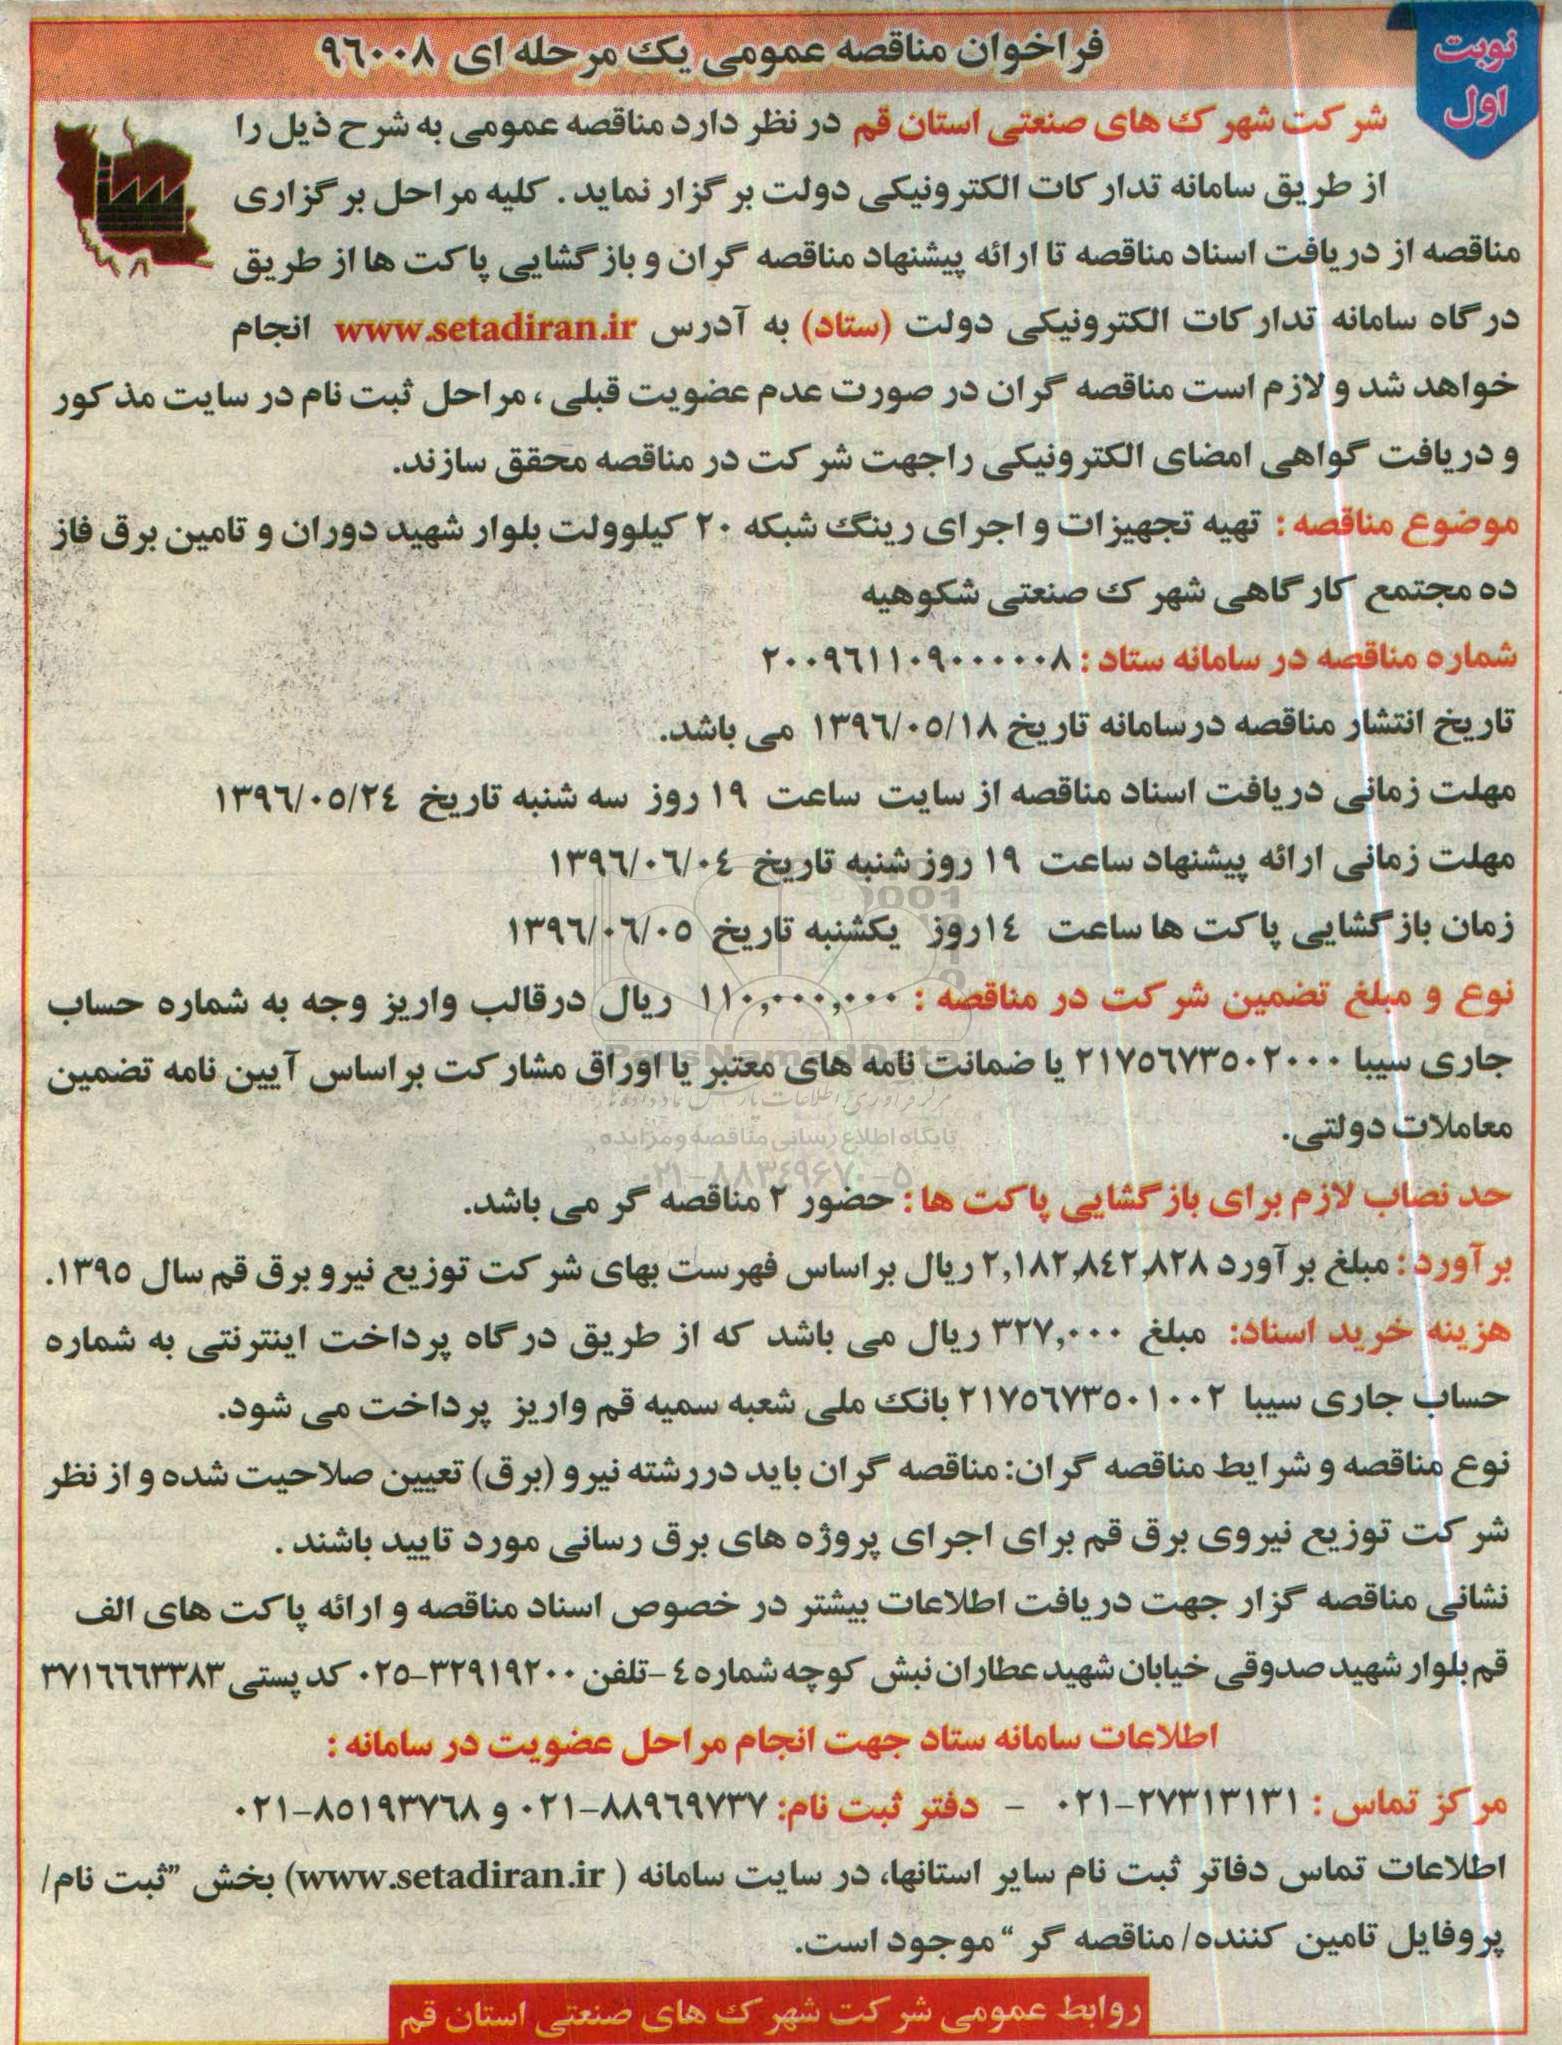 نوبت
اول
فراخوان مناقصه عمومی یک مرحله ای ۹۶۰۰۸
شرکت شهرک های صنعتی استان قم در نظر دارد مناقصه عمومی به شرح ذیل را
از طریق سامانه تدارکات الکترونیکی دولت برگزار نماید. کلیه مراحل برگزاری
مناقصه از دریافت اسناد مناقصه تا ارائه پیشنهاد مناقصه گران و بازگشایی پاکت ها از طریق
درگاه سامانه تدارکات الکترونیکی دولت (ستاد) به آدرس www.setadiran.ir انجام
خواهد شد و لازم است مناقصه گران در صورت عدم عضویت قبلی، مراحل ثبت نام در سایت مذکور
و دریافت گواهی امضای الکترونیکی راجهت شرکت در مناقصه محقق سازند.
موضوع مناقصه: تهیه تجهیزات و اجرای رینگ شبکه ۲۰ کیلوولت بلوار شهید دوران و تامین برق فاز
ده مجتمع کارگاهی شهرک صنعتی شکوهیه
شماره مناقصه در سامانه ستاد: ۲۰۰۹۶۱۱۰۹۰۰۰۰۰۸
تاریخ انتشار مناقصه درسامانه تاریخ ۱۳۹۶/۰۵/۱۸ می باشد.
مهلت زمانی دریافت اسناد مناقصه از سایت ساعت ۱۹ روز سه شنبه تاریخ ۱۳۹۶/۰۵/۲۴
مهلت زمانی ارائه پیشنهاد ساعت ۱۹ روز شنبه تاریخ ۱۳۹۶/۰۶/۰۴
زمان بازگشایی پاکت ها ساعت ۱۴روز یکشنبه تاریخ ۱۳۹۶/۰۶/۰۵
نوع و مبلغ تضمین شرکت در مناقصه: ۱۱۰,۰۰۰,۰۰۰ ریال درقالب واریز وجه به شماره حساب
جاری سیبا ۲۱۷۵۶۷۳۵۰۲۰۰۰ یا ضمانت نامه های معتبر یا اوراق مشارکت براساس آیین نامه تضمین
ParsNamadData
معاملات دولتی.
پایگاه اطلاع رسانی مناقصه و مزایده
۰۲۱-۸۸۳۴۹۶۷۰-۵
حد نصاب لازم برای بازگشایی پاکت ها: حضور ۲ مناقصه گر می باشد.
برآورد: مبلغ برآورد ۲,۱۸۲,۸۴۲,۸۲۸ ریال براساس فهرست بهای شرکت توزیع نیرو برق قم سال ۱۳۹۵.
هزینه خرید اسناد: مبلغ ۳۲۷,۰۰۰ ریال می باشد که از طریق درگاه پرداخت اینترنتی به شماره
حساب جاری سیبا ۲۱۷۵۶۷۳۵۰۱۰۰۲ بانک ملی شعبه سمیه قم واریز پرداخت می شود.
نوع مناقصه و شرایط مناقصه گران: مناقصه گران باید دررشته نیرو (برق) تعیین صلاحیت شده و از نظر
شرکت توزیع نیروی برق قم برای اجرای پروژه های برق رسانی مورد تایید باشند.
نشانی مناقصه گزار جهت دریافت اطلاعات بیشتر در خصوص اسناد مناقصه و ارائه پاکت های الف
قم بلوار شهید صدوقی خیابان شهید عطاران نبش کوچه شماره ۴-تلفن ۳۲۹۱۹۲۰۰-۰۲۵ کد پستی ۳۷۱۶۶۶۳۳۸۳
اطلاعات سامانه ستاد جهت انجام مراحل عضویت در سامانه:
مرکز تماس: ۲۷۳۱۳۱۳۱-۰۲۱ - دفتر ثبت نام: ۸۸۹۶۹۷۳۷-۰۲۱ و ۸۵۱۹۳۷۶۸-۰۲۱
اطلاعات تماس دفاتر ثبت نام سایر استانها، در سایت سامانه (www.setadiran.ir) بخش ”ثبت نام/
پروفایل تامین کننده/ مناقصه گر“ موجود است.
روابط عمومی شرکت شهرک های صنعتی استان قم